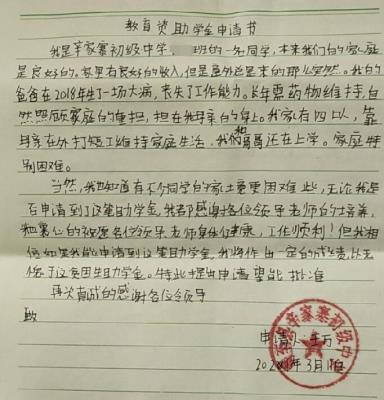 教育资助学金申请书
我是辛家寨初级中学 班的一名同学,本来我们的家庭
是良好的,有良好的收入,但是意外总是来的那么突然。我的
爸爸在2018年生了一场大病,丧失了工作能力。长年需药物维持,自
然照顾家庭的重担,担在我母亲的身上。我家有四口人,靠
母亲在外打短工维持家庭生活,我和哥哥还在上学。家庭特
别困难。
当然,我也知道有不少同学的家庭更困难些,无论我是
否申请到了这笔助学金,我都感谢各位领导老师的培养,
我衷心的祝愿各位领导老师身体健康,工作顺利!但我相
信如果我能申请到这笔助学金,我将作出一定的成绩,以无
愧于这贫困生助学金。特此提出申请望能批准
再次真诚的感谢各位领导
致
申请人:王万
3月1日
辛家寨初级中学